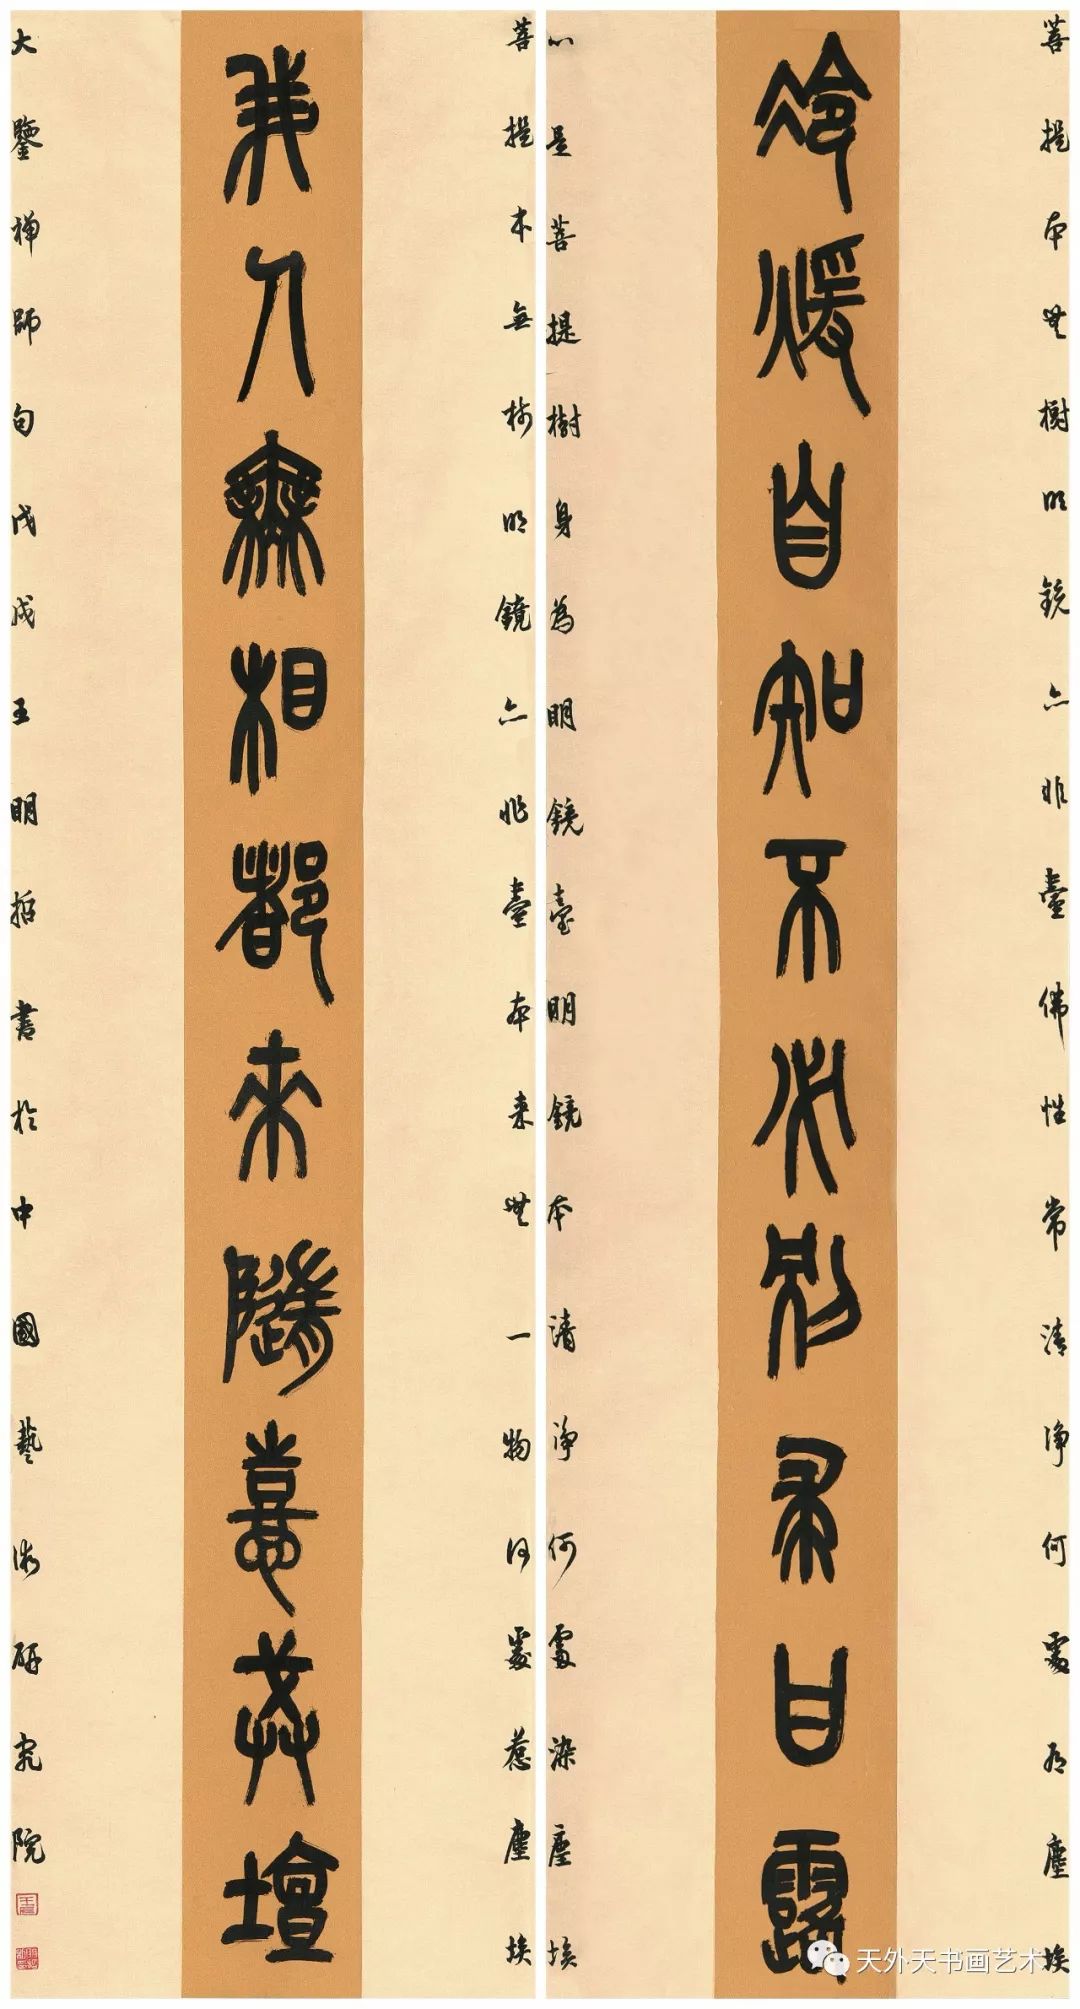 菩提本无樹明鏡亦非臺佛性常清淨何處有塵埃
冷煖自知不必别甘露
心是菩提樹身為明鏡臺明鏡本清淨何處染塵埃
菩提本無樹明鏡亦非臺本来无一物何處惹塵埃
我人無相都来隨憙戒壇
大鑒禅師句戊戌王明哲書於中國藝術研究院
天外天书画艺术